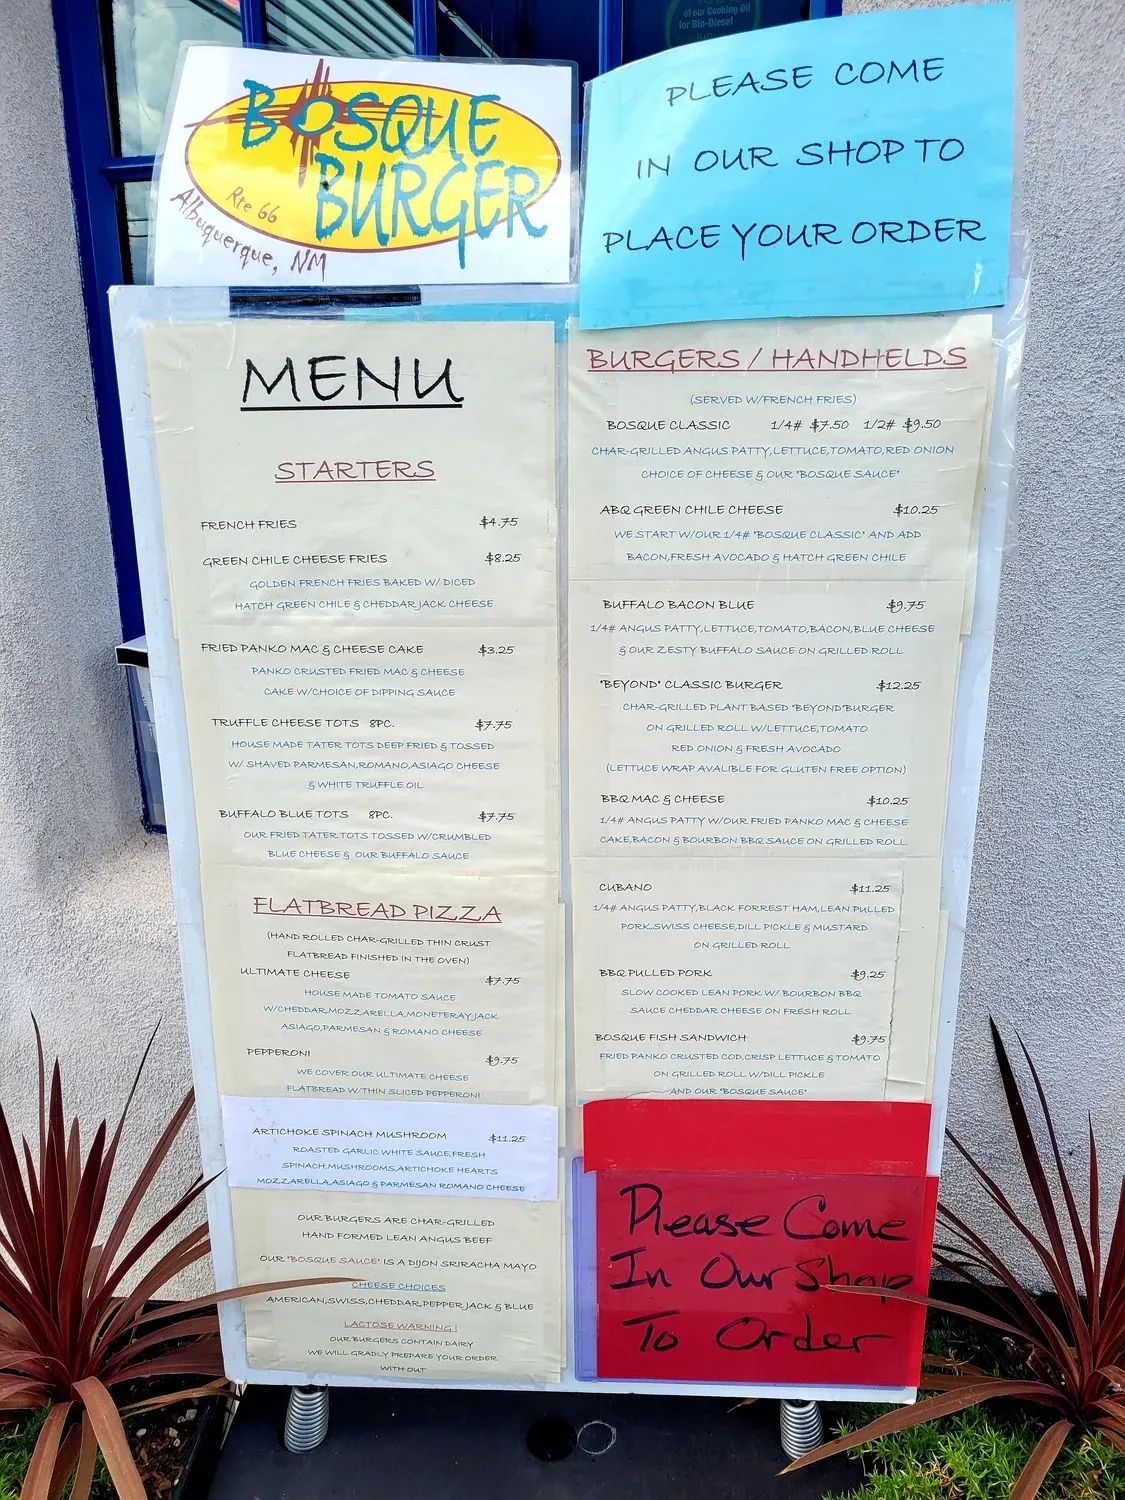 of our Cooking Oil
for Bio-Diesel
BOSQUE
BURGER
Rte 66
Albuquerque, NM
PLEASE COME
IN OUR SHOP TO
PLACE YOUR ORDER
MENU
STARTERS
FRENCH FRIES $4.75
GREEN CHILE CHEESE FRIES $8.25
GOLDEN FRENCH FRIES BAKED W/ DICED
HATCH GREEN CHILE & CHEDDAR,JACK CHEESE
FRIED PANKO MAC & CHEESE CAKE $3.25
PANKO CRUSTED FRIED MAC & CHEESE
CAKE W/CHOICE OF DIPPING SAUCE
TRUFFLE CHEESE TOTS 8PC. $7.75
HOUSE MADE TATER TOTS DEEP FRIED & TOSSED
W/ SHAVED PARMESAN,ROMANO,ASIAGO CHEESE
& WHITE TRUFFLE OIL
BUFFALO BLUE TOTS 8PC. $7.75
OUR FRIED TATER TOTS TOSSED W/CRUMBLED
BLUE CHEESE & OUR BUFFALO SAUCE
FLATBREAD PIZZA
(HAND ROLLED CHAR-GRILLED THIN CRUST
FLATBREAD FINISHED IN THE OVEN)
ULTIMATE CHEESE $7.75
HOUSE MADE TOMATO SAUCE
W/CHEDDAR,MOZZARELLA,MONETERAY JACK
ASIAGO,PARMESAN & ROMANO CHEESE
PEPPERONI $9.75
WE COVER OUR ULTIMATE CHEESE
FLATBREAD W/THIN SLICED PEPPERONI
ARTICHOKE SPINACH MUSHROOM $11.25
ROASTED GARLIC WHITE SAUCE,FRESH
SPINACH,MUSHROOMS,ARTICHOKE HEARTS
MOZZARELLA,ASIAGO & PARMESAN ROMANO CHEESE
OUR BURGERS ARE CHAR-GRILLED
HAND FORMED LEAN ANGUS BEEF
OUR "BOSQUE SAUCE" IS A DIJON SRIRACHA MAYO
CHEESE CHOICES
AMERICAN,SWISS,CHEDDAR,PEPPER JACK & BLUE
LACTOSE WARNING !
OUR BURGERS CONTAIN DAIRY
WE WILL GRADLY PREPARE YOUR ORDER
WITH OUT
BURGERS / HANDHELDS
(SERVED W/FRENCH FRIES)
BOSQUE CLASSIC 1/4# $7.50 1/2# $9.50
CHAR-GRILLED ANGUS PATTY,LETTUCE,TOMATO,RED ONION
CHOICE OF CHEESE & OUR "BOSQUE SAUCE"
ABQ GREEN CHILE CHEESE $10.25
WE START W/OUR 1/4# "BOSQUE CLASSIC" AND ADD
BACON,FRESH AVOCADO & HATCH GREEN CHILE
BUFFALO BACON BLUE $9.75
1/4# ANGUS PATTY,LETTUCE,TOMATO,BACON,BLUE CHEESE
& OUR ZESTY BUFFALO SAUCE ON GRILLED ROLL
"BEYOND" CLASSIC BURGER $12.25
CHAR-GRILLED PLANT BASED "BEYOND"BURGER
ON GRILLED ROLL W/LETTUCE,TOMATO
RED ONION & FRESH AVOCADO
(LETTUCE WRAP AVALIBLE FOR GLUTEN FREE OPTION)
BBQ MAC & CHEESE $10.25
1/4# ANGUS PATTY W/OUR FRIED PANKO MAC & CHEESE
CAKE,BACON & BOURBON BBQ SAUCE ON GRILLED ROLL
CUBANO $11.25
1/4# ANGUS PATTY,BLACK FORREST HAM,LEAN PULLED
PORK,SWISS CHEESE,DILL PICKLE & MUSTARD
ON GRILLED ROLL
BBQ PULLED PORK $9.25
SLOW COOKED LEAN PORK W/ BOURBON BBQ
SAUCE CHEDDAR CHEESE ON FRESH ROLL
BOSQUE FISH SANDWICH $9.75
FRIED PANKO CRUSTED COD,CRISP LETTUCE & TOMATO
ON GRILLED ROLL W/DILL PICKLE
AND OUR "BOSQUE SAUCE"
Please Come
In Our Shop
To Order